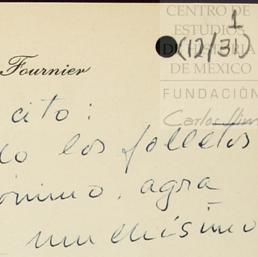 CENTRO DE
ESTUDIOS
DE HISTORIA
DE MÉXICO
FUNDACIÓN
Carlos Slim
1
(12/31)
Fournier
cito:
do los folletos
agra
muchísimo